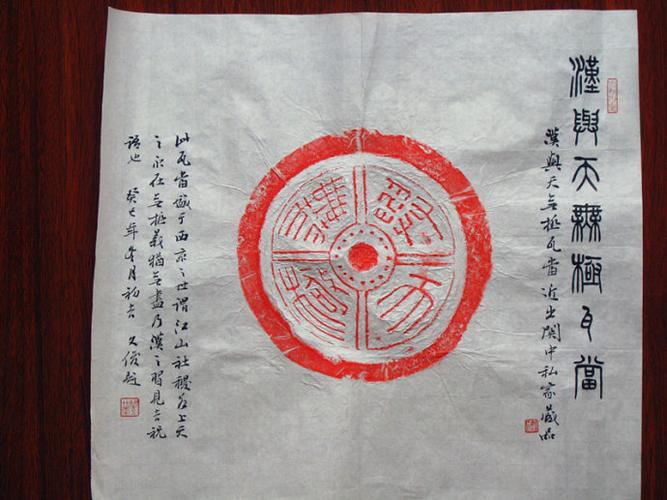 漢與天無極瓦當
漢與天無極瓦當近出関中私家藏品
此瓦當誠于西京之世謂江山社稷為上天
之永在無極義猶無盡乃漢之習見吉祝
語也 癸巳年冬月初吉 久俊題